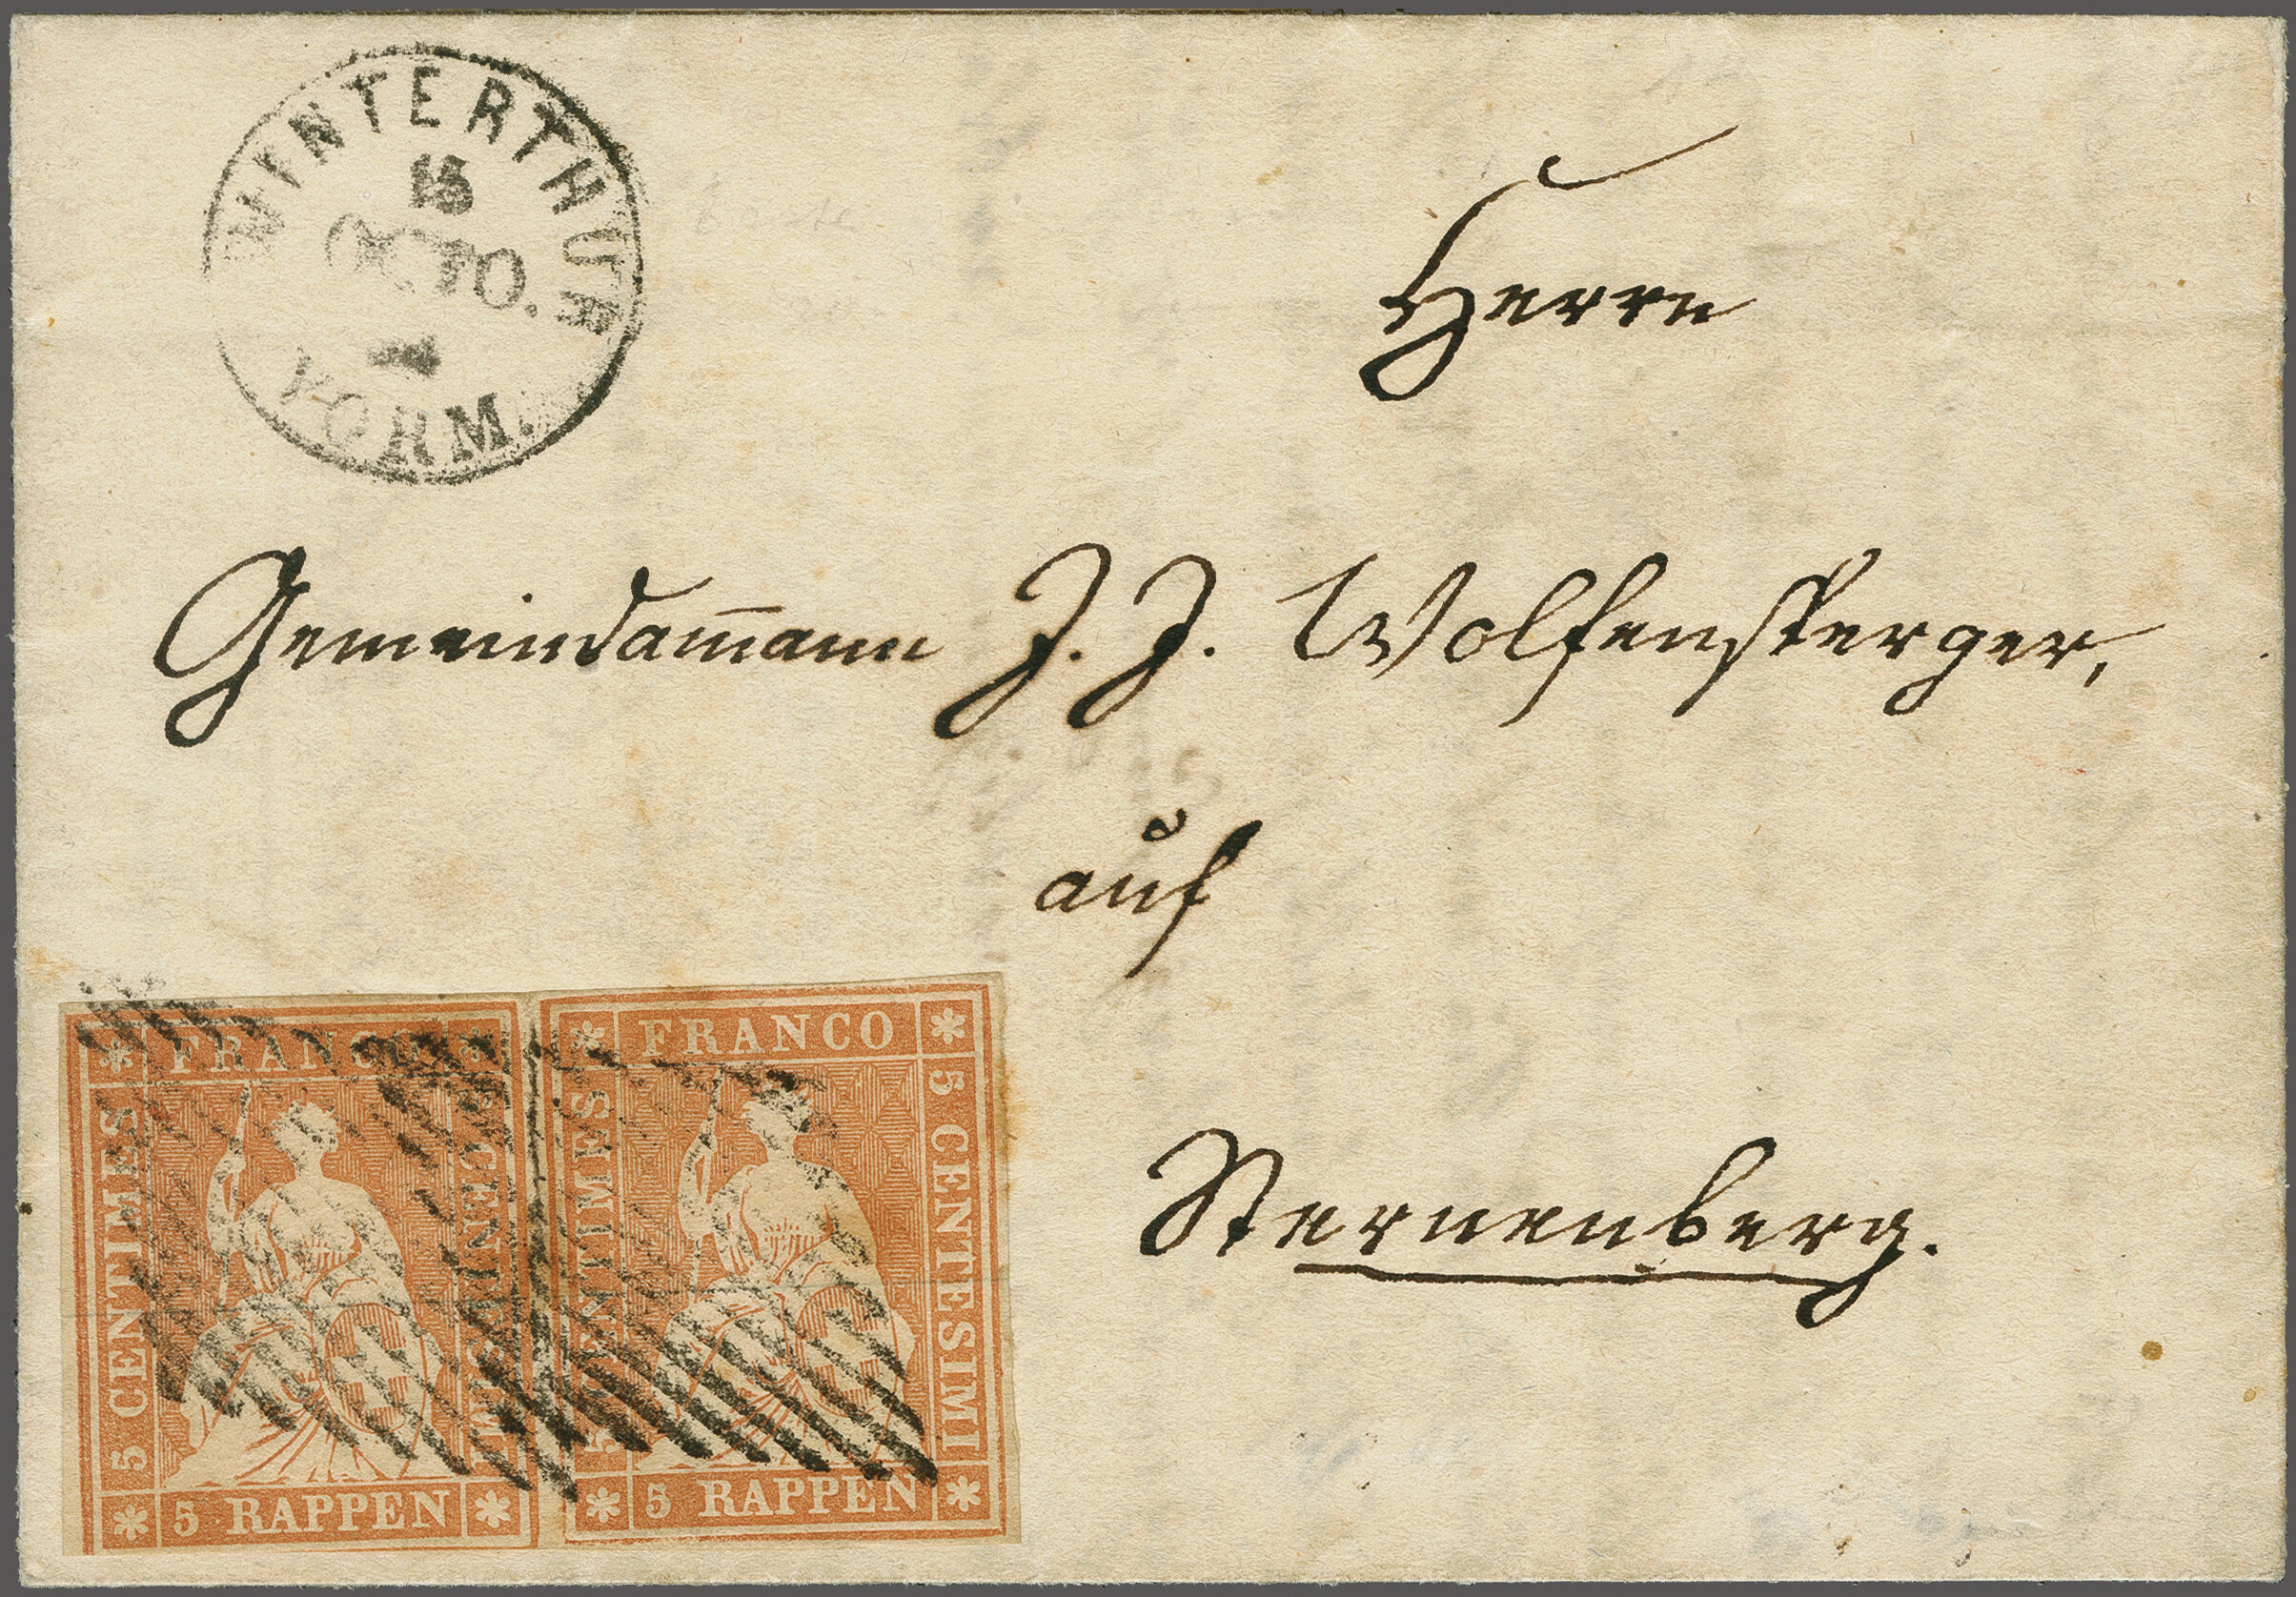 WINTERTHUR
15
OCTO.
VORM.
Herrn
Gemeindam̅ann J. J. Wolfensperger,
auf
Sternenberg.
FRANCO
5 CENTIMES
5 CENTESIMI
5 RAPPEN
FRANCO
5 CENTIMES
5 CENTESIMI
5 RAPPEN